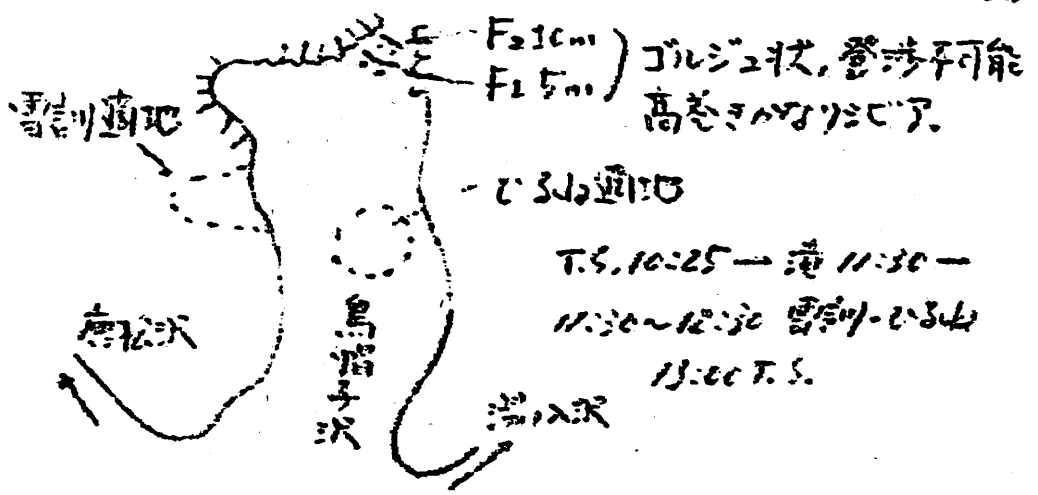 F2 10m
F1 5m
ゴルジュ状、登渉不可能
高巻きかなりシビア。
雪訓適地
ひるね適地
T.S.10:25 → 滝 11:30 →
11:30〜12:30 雪訓・ひるね
13:00 T.S.
唐松沢
烏帽子沢
湯ノ入沢